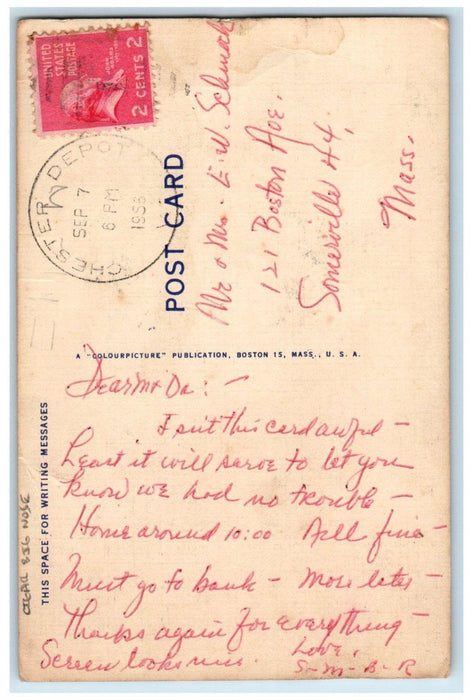 UNITED STATES POSTAGE
2 CENTS 2
CHESTER DEPOT
SEP 7
6 PM
1956
POST CARD
Mr & Mrs. E. W. Schmoll
121 Boston Ave.
Somerville 44,
Mass.
A "COLOURPICTURE" PUBLICATION, BOSTON 15, MASS., U. S. A.
THIS SPACE FOR WRITING MESSAGES
Dear M & Da: -
Isn't this card awful -
Least it will serve to let you
know we had no trouble -
Home around 10:00 All fine -
Must go to bank - More later -
Thanks again for everything -
Screen looks nice.
Love,
S-M-B-R